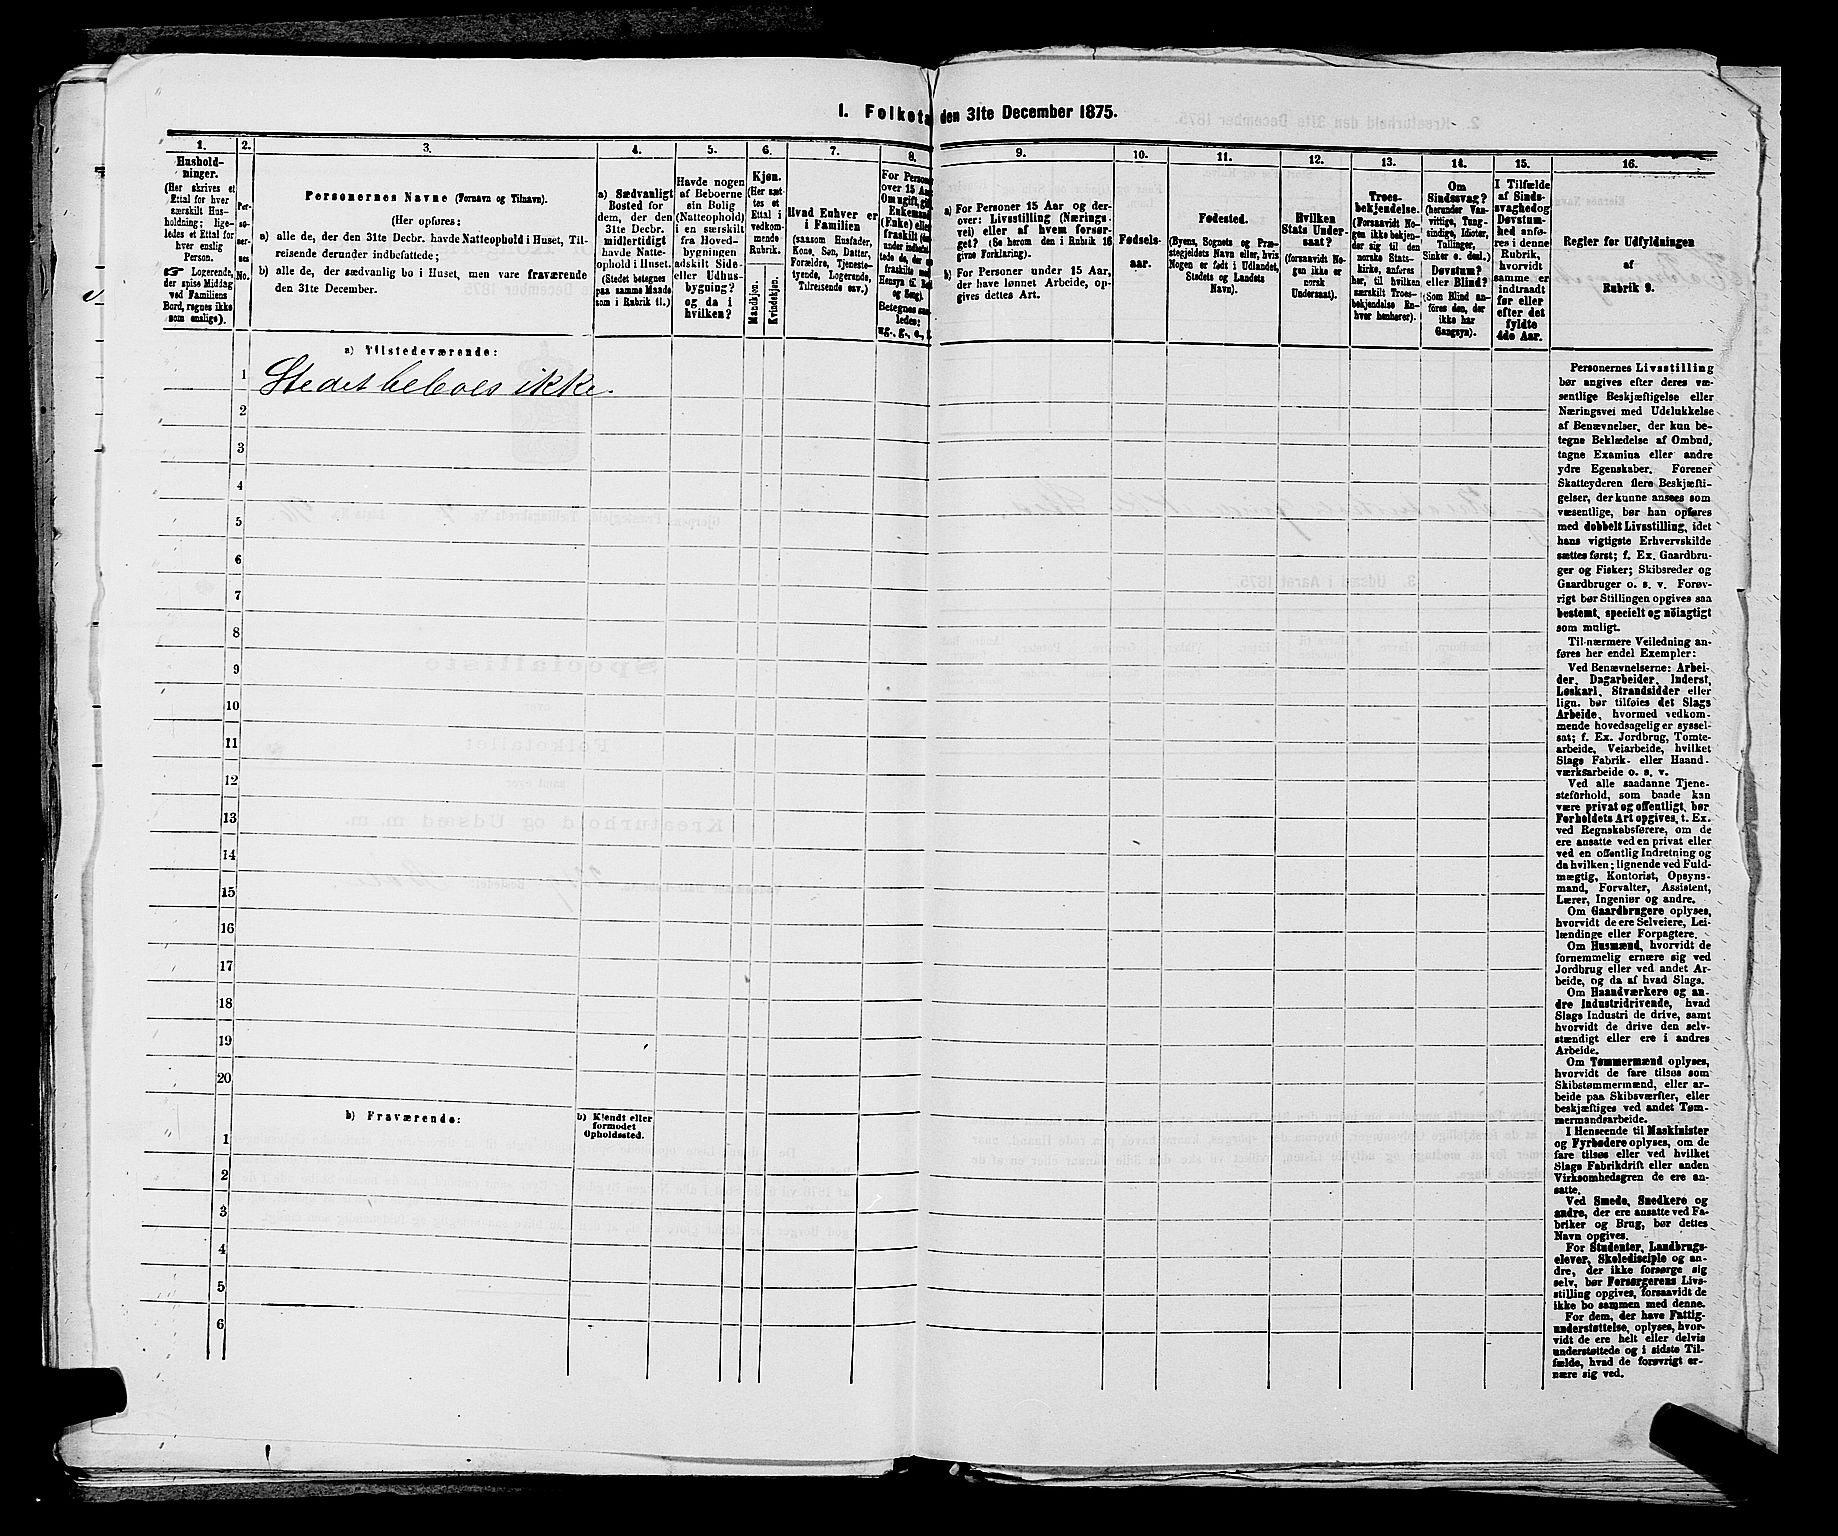 1. Folketa den 31te December 1875.
1.
Hushold-
ninger.
(Her skrives et
Ettal for hver
særskilt Hus-
holdning; lige-
ledes et Ettal for
hver enslig
Person.
☞ Logerende,
der spise Middag
ved Familiens
Bord, regnes ikke
som enslige).
2.
Per-
so-
ner-
nes
No.
3.
Personernes Navne (Fornavn og Tilnavn).
(Her opføres:
a) alle de, der den 31te Decbr. havde Natteophold i Huset, Til-
reisende derunder indbefattede;
b) alle de, der sædvanlig bo i Huset, men vare fraværende
den 31te December.
4.
a) Sædvanligt
Bosted for
dem, der den
31te Decbr.
midlertidigt
havde Natte-
ophold i Huset.
(Stedet betegnes
paa samme Maade
som i Rubrik 11.)
5.
Havde nogen
af Beboerne
sin Bolig
(Natteophold)
i en særskilt
fra Hoved-
bygningen
adskilt Side-
eller Udhus-
bygning?
og da i
hvilken?
6.
Kjøn.
(Her sæt-
tes et
Ettal i
vedkom-
mende
Rubrik.
Mandkjøn.
Kvindekjøn.
7.
Hvad Enhver er
i Familien
(saasom Husfader,
Kone, Søn, Datter,
Forældre, Tjeneste-
tyende, Logerende,
Tilreisende osv.)
8.
For Person
over 15 Aar
Om ugift, gift
Enkemand
(Enke) eller
fraskilt
Betegnes saa-
ledes:
ug., g., e., f.
9.
a) For Personer 15 Aar og der-
over: Livsstilling (Nærings-
vei) eller af hvem forsør-
get? (Se herom den i Rubrik 16
givne Forklaring).
b) For Personer under 15 Aar,
der have lønnet Arbeide, op-
gives dettes Art.
10.
Fødsels-
aar.
11.
Fødested.
(Byens, Sognets og Præ-
stegjeldets Navn eller, hvis
Nogen er født i Udlandet,
Stedets og Landets
Navn).
12.
Hvilken
Stats Under-
saat?
(forsaavidt No-
gen ikke er
norsk
Undersaat).
13.
Troes-
bekjendelse.
(Forsaavidt No-
gen ikke bekjen-
der sig til den
norske Stats-
kirke, anføres
her, til hvilken
særskilt Troes-
bekjendelse En-
hver henhører).
14.
Om
Sindssvag?
(herunder Van-
vittige, Tung-
sindige, Idioter,
Tullinger,
Sinker o. desl.)
Døvstum?
eller Blind?
(Som Blind an-
føres den, der
ikke har
Gangsyn).
15.
I Tilfælde
af Sinds-
svaghed og
Døvstum-
hed anfø-
res i denne
Rubrik,
hvorvidt
samme er
indtraadt
før eller
efter det
fyldte
4de Aar.
16.
Regler for Udfyldningen
af
Rubrik 9.
a) Tilstedeværende:
1 Stedet beboes ikke.
2
3
4
5
6
7
8
9
10
11
12
13
14
15
16
17
18
19
20
b) Fraværende:
b) Kjendt eller
formodet
Opholdssted.
1
2
3
4
5
6
Personernes Livsstilling
bør angives efter deres væ-
sentlige Beskjæftigelse eller
Næringsvei med Udelukkelse
af Benævnelser, der kun be-
tegne Beklædelse af Ombud,
tagne Examina eller andre
ydre Egenskaber. Forener
Skatteyderen flere Beskjæfti-
gelser, der kunne ansees som
væsentlige, bør han opføres
med dobbelt Livsstilling, idet
hans vigtigste Erhvervskilde
sættes først; f. Ex. Gaardbru-
ger og Fisker; Skibsreder og
Gaardbruger o. s. v. Forøv-
rigt bør Stillingen opgives saa
bestemt, specielt og nöiagtigt
som muligt.
Til nærmere Veiledning an-
føres her endel Exempler:
Ved Benævnelserne: Arbei-
der, Dagarbeider, Inderst,
Løskarl, Strandsidder eller
lign. bør tilføies det Slags
Arbeide, hvormed vedkom-
mende hovedsagelig er syssel-
sat; f. Ex. Jordbrug, Tomte-
arbeide, Veiarbeide, hvilket
Slags Fabrik- eller Haand-
værksarbeide o. s. v.
Ved alle saadanne Tjene-
steforhold, som baade kan
være privat og offentligt, bør
Forholdets Art opgives, t. Ex.
ved Regnskabsførere, om de
ere ansatte ved en privat eller
ved en offentlig Indretning og
da hvilken; lignende ved Fuld-
mægtig, Kontorist, Opsyns-
mand, Forvalter, Assistent,
Lærer, Ingeniør og andre.
Om Gaardbrugere oplyses,
hvorvidt de ere Selveiere, Lei-
lændinge eller Forpagtere.
Om Husmænd, hvorvidt de
fornemmelig ernære sig ved
Jordbrug eller ved andet Ar-
beide, og da af hvad Slags.
Om Haandværkere og an-
dre Industridrivende, hvad
Slags Industri de drive, samt
hvorvidt de drive den selv-
stændigt eller ere i andres
Arbeide.
Om Tømmermænd oplyses,
hvorvidt de fare tilsøs som
Skibstømmermænd, eller ar-
beide paa Skibsværfter, eller
beskjæftiges ved andet Tøm-
mermandsarbeide.
I Henseende til Maskinister
og Fyrbødere oplyses, om de
fare tilsøs eller ved hvilket
Slags Fabrikdrift eller anden
Virksomhedsgren de ere an-
satte.
Ved Smede, Snedkere og
andre, der ere ansatte ved Fa-
briker og Brug, bør dettes
Navn opgives.
For Studenter, Landbrugs-
elever, Skoledisciple og an-
dre, der ikke forsørge sig
selv, bør Forsørgerens Livs-
stilling opgives, forsaavidt de
ikke bo sammen med denne.
For dem, der have Fattig-
understøttelse, oplyses, hvor-
vidt de ere helt eller delvis
understøttede og i sidste Til-
fælde, hvad de forøvrigt er-
nære sig ved.